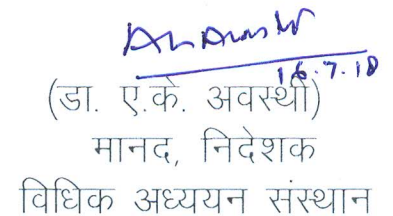 16.7.18
(डा. ए.के. अवस्थी)
मानद, निदेशक
विधिक अध्ययन संस्थान